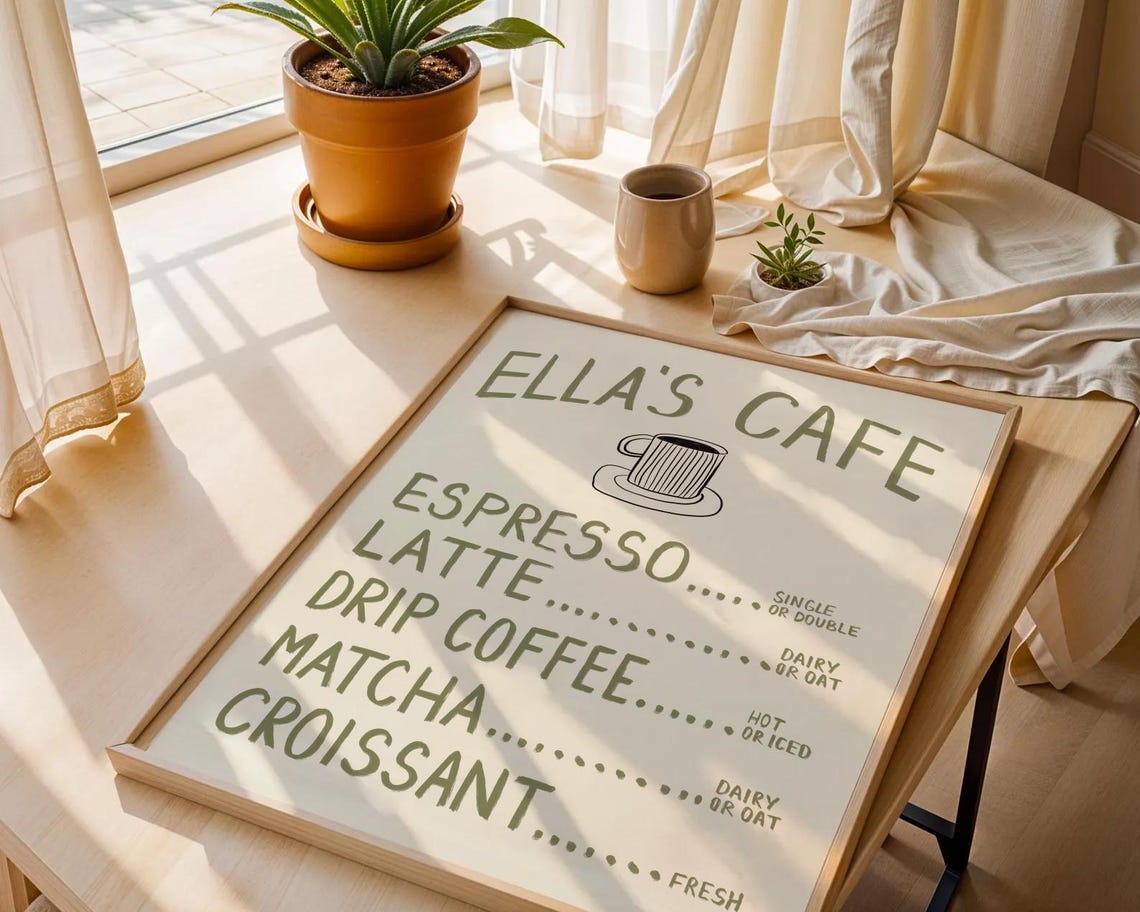 ELLA'S CAFE
ESPRESSO...... SINGLE
OR DOUBLE
LATTE................ DAIRY
OR OAT
DRIP COFFEE....... HOT
OR ICED
MATCHA............... DAIRY
OR OAT
CROISSANT........ FRESH